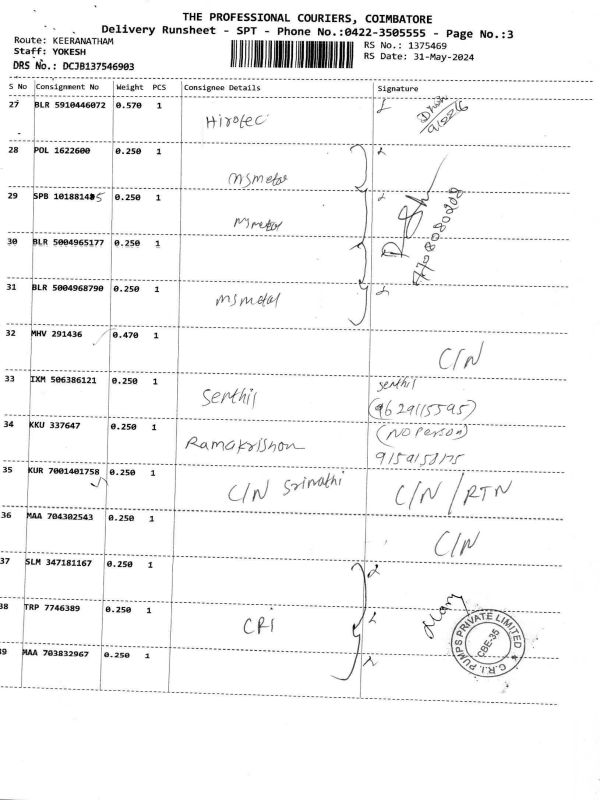 THE PROFESSIONAL COURIERS, COIMBATORE
Delivery Runsheet - SPT - Phone No.:0422-3505555 - Page No.:3
Route: KEERANATHAM
RS No.: 1375469
Staff: YOKESH
RS Date: 31-May-2024
DRS No.: DCJB137546903
S No Consignment No Weight PCS Consignee Details Signature
27 BLR 5910446072 0.570 1 Hirotec
28 POL 1622600 0.250 1 msmetal
29 SPB 101881485 0.250 1 msmetal
30 BLR 5004965177 0.250 1
31 BLR 5004968790 0.250 1 msmetal
7708080208
32 MHV 291436 0.470 1 C/N
33 IXM 506386121 0.250 1 Senthil Senthil
(9629115595)
34 KKU 337647 0.250 1 Ramakrishnan (NO Person)
9159158175
35 KUR 7001401758 0.250 1 C/N Srinathi C/N / RTN
36 MAA 704302543 0.250 1 C/N
37 SLM 347181167 0.250 1
38 TRP 7746389 0.250 1 CRI
39 MAA 703832967 0.250 1
C.R.I. PUMPS PRIVATE LIMITED
CBE-35